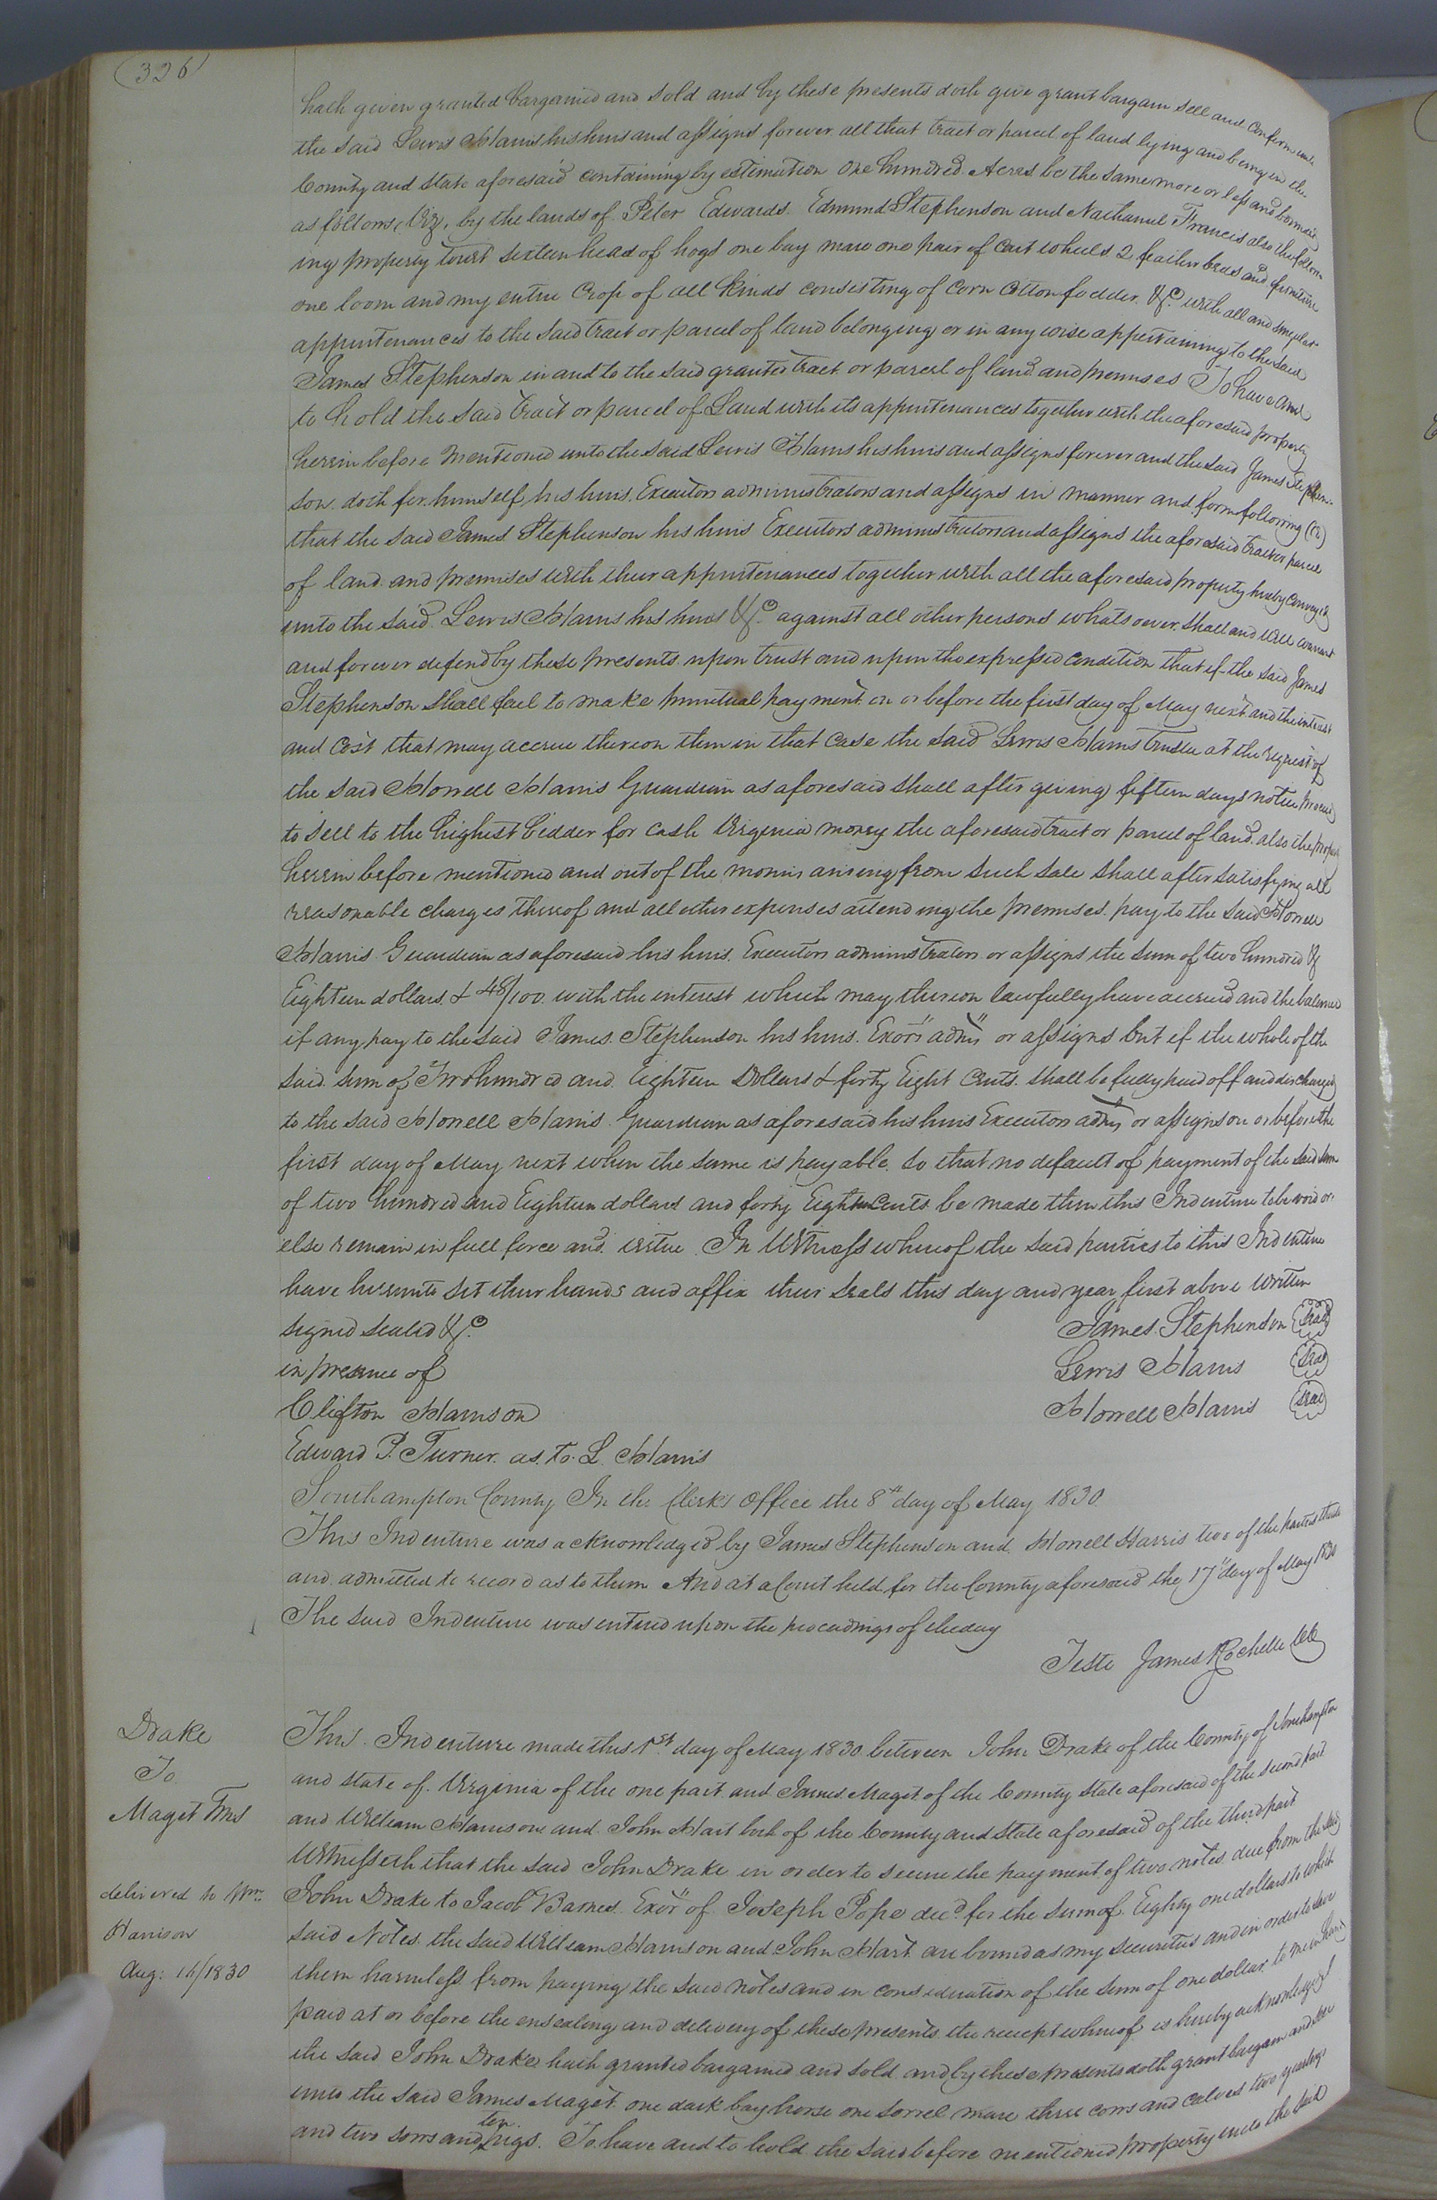 326
hath given granted bargained and sold and by these presents doth give grant bargain sell and confirm unto
the said Lewis Harris his heirs and assigns forever all that tract or parcel of land lying and being in the
County and State aforesaid containing by estimation One hundred Acres be the same more or less and bounded
as follows, Viz, by the lands of Peter Edwards Edmund Stephenson and Nathaniel Francis also the follow
ing property towit sixteen head of hogs one bay mare one pair of cart wheels 2 feather beds and furniture
one loom and my entire Crop of all kinds consisting of Corn Cotton fodder &c with all and singular
appurtenances to the said tract or parcel of land belonging or in any wise appertaining to the said
James Stephenson in and to the said granted tract or parcel of land and premises To have and
to hold the said tract or parcel of Land with its appurtenances together with the aforesaid property
herein before Mentioned unto the said Lewis Harris his heirs and assigns forever and the said James Stephen-
son doth for himself, his heirs, Executors administrators and assigns in manner and form following
that the said James Stephenson his heirs Executors administrators and assigns the aforesaid tract or parcel
of land and premises with their appurtenances together with all the aforesaid property hereby conveyed
unto the said Lewis Harris his heirs &c against all other persons whatsoever shall and will warrant
and forever defend by these presents upon trust and upon the expressed condition that if the said James
Stephenson shall fail to make punctual payment on or before the first day of May next and the interest
and Cost that may accrue thereon then in that case the said Lewis Harris trustee at the request of
the said Howell Harris Guardian as aforesaid shall after giving fifteen days notice proceed
to sell to the highest bidder for cash Virginia money the aforesaid tract or parcel of land also the property
herein before mentioned and out of the monies arising from such sale shall after satisfying all
reasonable charges thereof and all other expenses attending the premises pay to the said Howell
Harris Guardian as aforesaid his heirs, Executors administrators or assigns the sum of two hundred &
Eighteen dollars & 48/100 with the interest which may thereon lawfully have accrued and the balance
if any pay to the said James Stephenson his heirs, Exors admrs or assigns but if the whole of the
said sum of Two hundred and Eighteen Dollars & forty Eight Cents shall be fully paid off and discharged
to the said Howell Harris Guardian as aforesaid his heirs Executors admrs or assigns on or before the
first day of May next when the same is payable so that no default of payment of the said sum
of two hundred and Eighteen dollars and forty Eight Cents be made then this Indenture to be void or
else remain in full force and virtue In Witness whereof the said parties to this Indenture
have hereunto set their hands and affix their seals this day and year first above written
signed sealed &c James Stephenson (Seal)
in presence of Lewis Harris (Seal)
Clifton Harrison Howell Harris (Seal)
Edward P. Turner as to L. Harris
Southampton County In the Clerks Office the 8th day of May 1830
This Indenture was acknowledged by James Stephenson and Howell Harris two of the parties thereto
and admitted to record as to them And at a Court held for the County aforesaid the 17th day of May 1830
The said Indenture was entered upon the proceedings of the day
Teste James Rochelle Clk
Drake
To
Maget Trus
delivered to Wm.
Harrison
Aug: 16/1830
This Indenture made this 1st day of May 1830 between John Drake of the County of Southampton
and state of Virginia of the one part and James Maget of the County State aforesaid of the second part
and William Harrison and John Hart both of the County and State aforesaid of the third part
Witnesseth that the said John Drake in order to secure the payment of two notes due from the said
John Drake to Jacob Barnes Exor of Joseph Pope decd for the sum of Eighty one dollars to which
said Notes the said William Harrison and John Hart are bound as my securities and in order to save
them harmless from paying the said notes and in consideration of the sum of one dollar to me in hand
paid at or before the ensealing and delivery of these presents the receipt whereof is hereby acknowledged
the said John Drake hath granted bargained and sold and by these presents doth grant bargain and sell
unto the said James Maget one dark bay horse one sorrel mare three cows and calves two yearlings
and two sows and ten pigs. To have and to hold the said before mentioned property unto the said